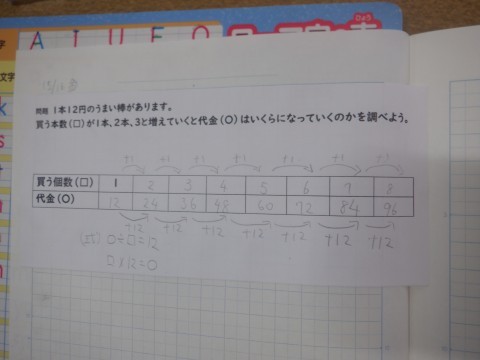 A I U E O
文字
問題 1本12円のうまい棒があります。
買う本数(□)が1本、2本、3と増えていくと代金(〇)はいくらになっていくのかを調べよう。
+1 +1 +1 +1 +1 +1 +1
買う個数(□) 1 2 3 4 5 6 7 8
代金(〇) 12 24 36 48 60 72 84 96
+12 +12 +12 +12 +12 +12 +12
(式) 〇÷□=12
□×12=〇